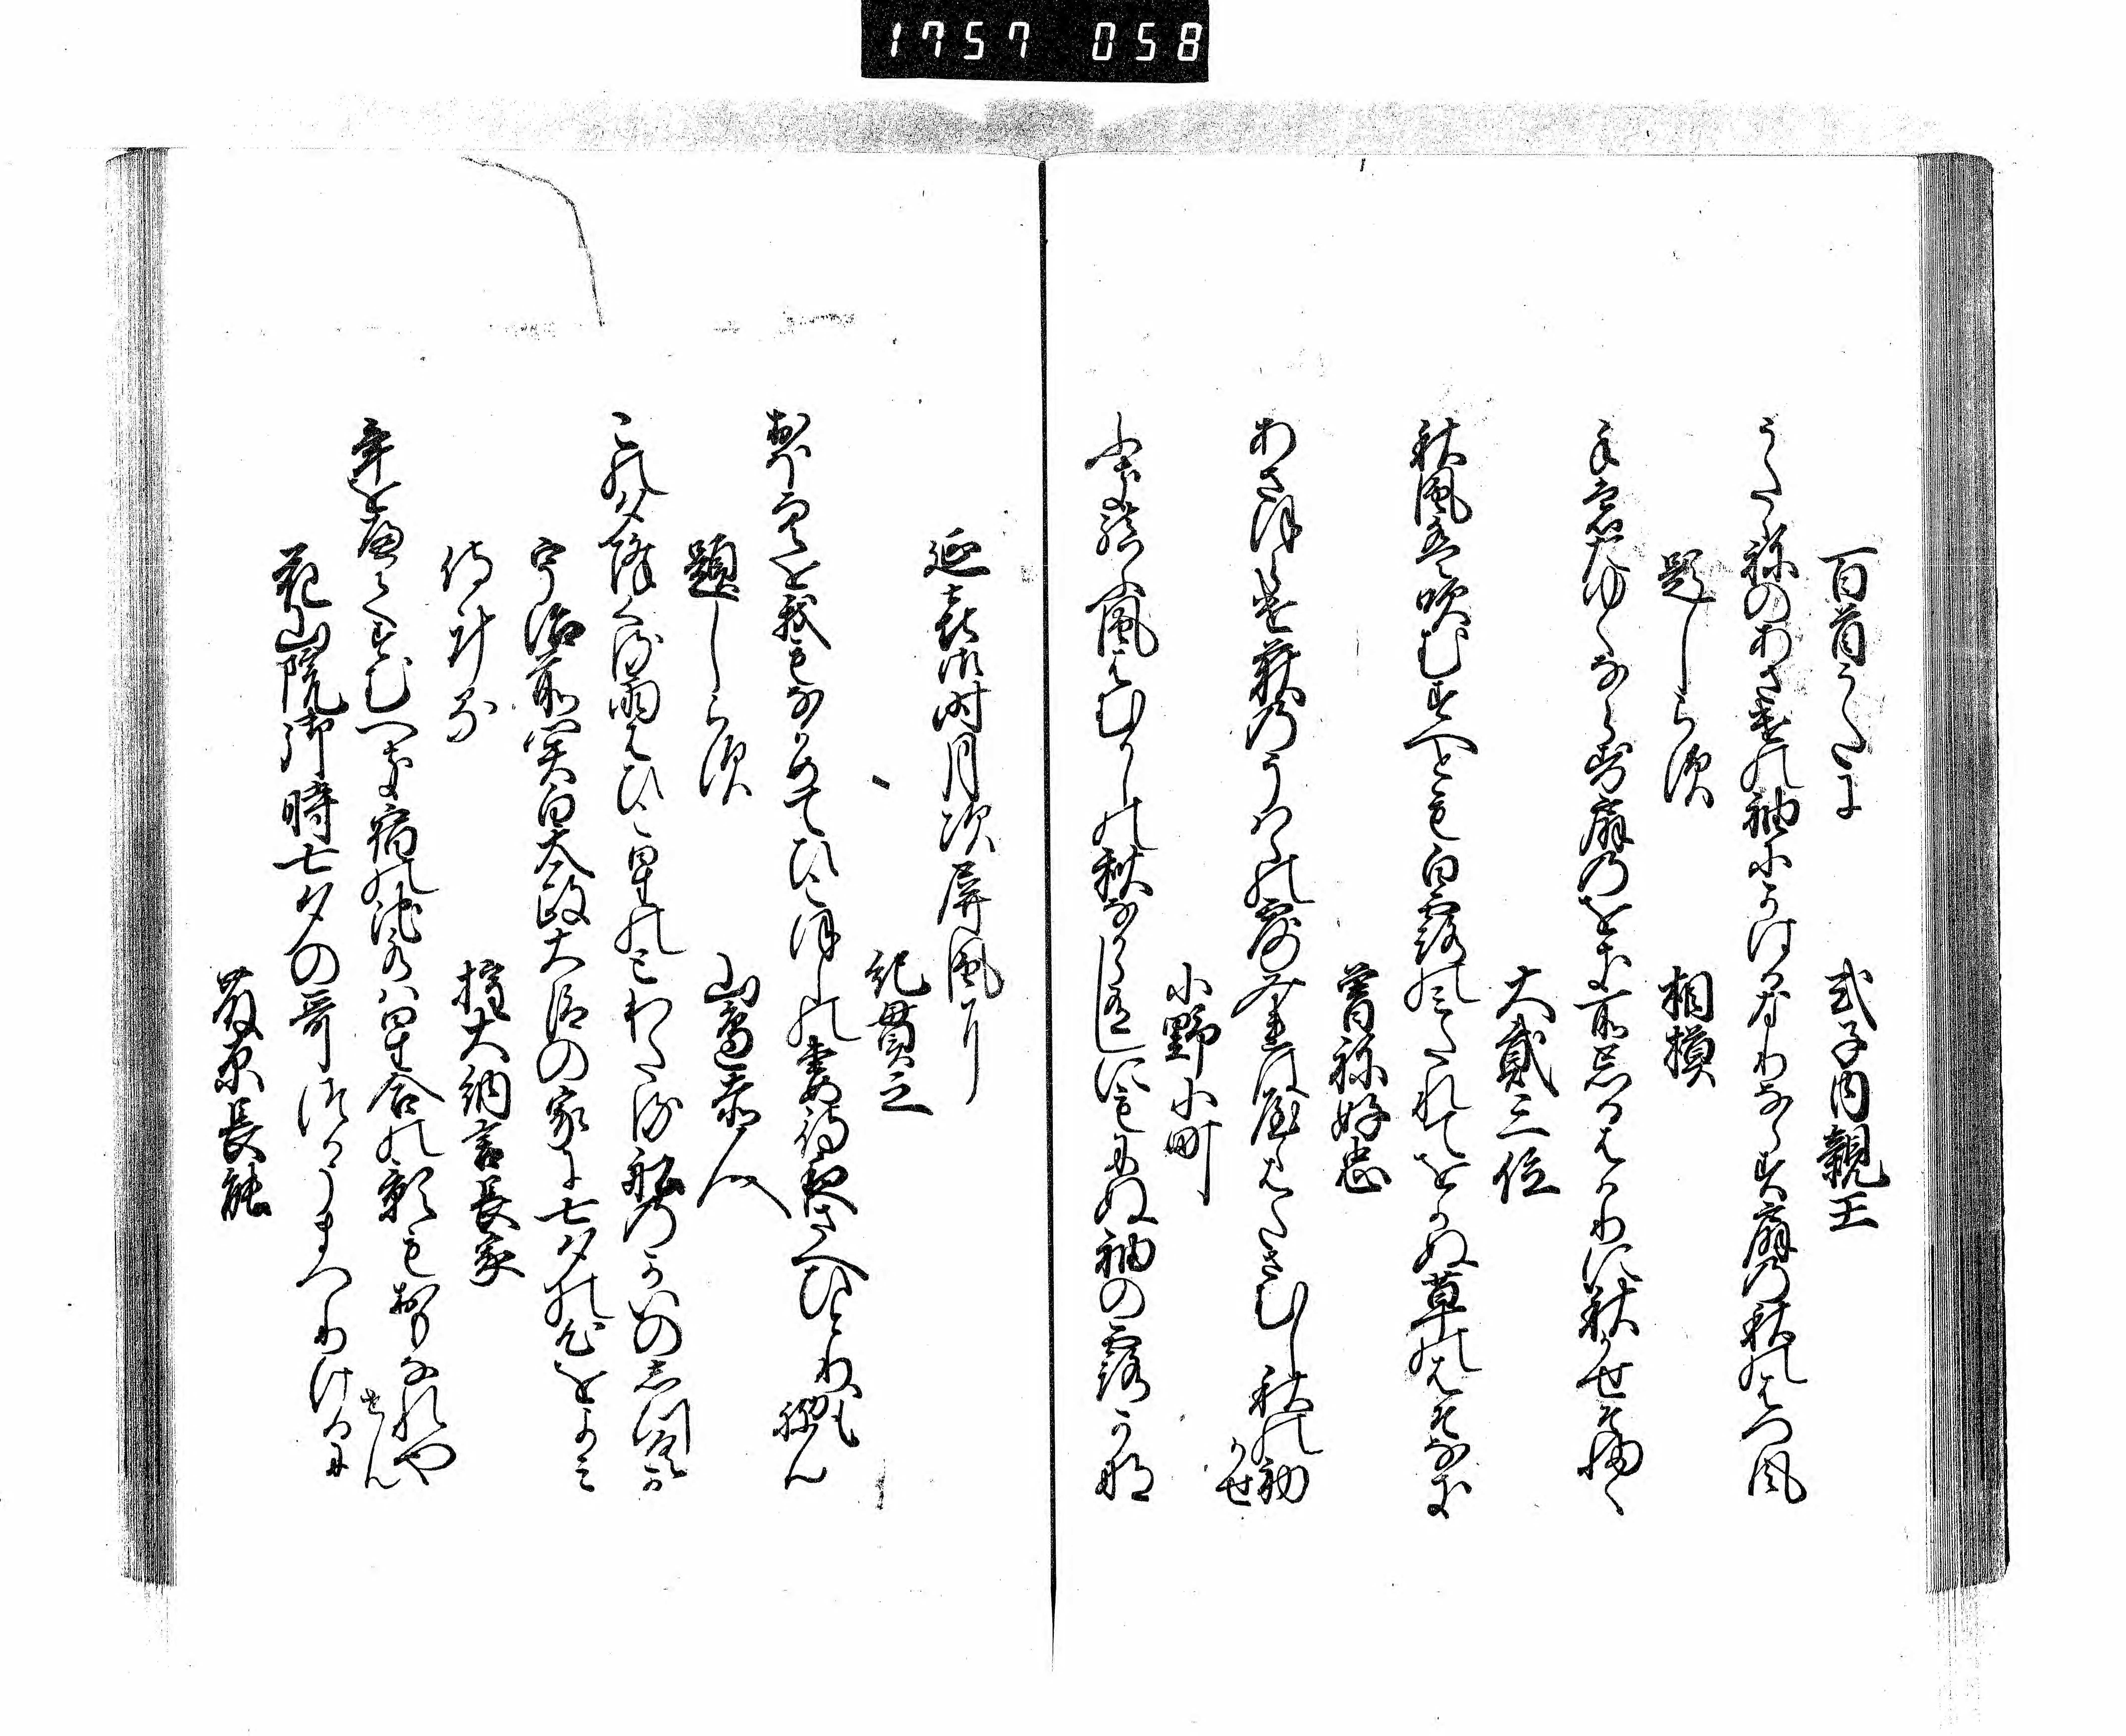 1757 058
百首うたに　式子内親王
うたゝねのあさけの袖にかはるなりならす扇の秋のはつ風
題しらす　相摸
手もたゆくならす扇のをき所忘るはかりに秋かせそ吹
大貳三位
秋風は吹むすへとも白露のみたれてをかぬ草のはそなき
曽祢好忠
あさほらけ荻のうは葉の露みれはやゝはたさむし秋の初
かせ
小野小町
吹結ふ風はむかしの秋なからありしにもにぬ袖の露かな
延喜御時月次屏風に
紀貫之
大空を我もなかめてひこほしの妻待夜さへひとりかも
ねん
題しらす　山邊赤人
この夕降くる雨はひこ星のとわたる舩のかいのしつくか
宇治前関白太政大臣の家に七夕の心をよみ
侍けるに　権大納言長家
年をへてすむへき宿の池水は星合の影も面なれや
せん
花山院御時七夕の哥つかうまつりけるに
藤原長能